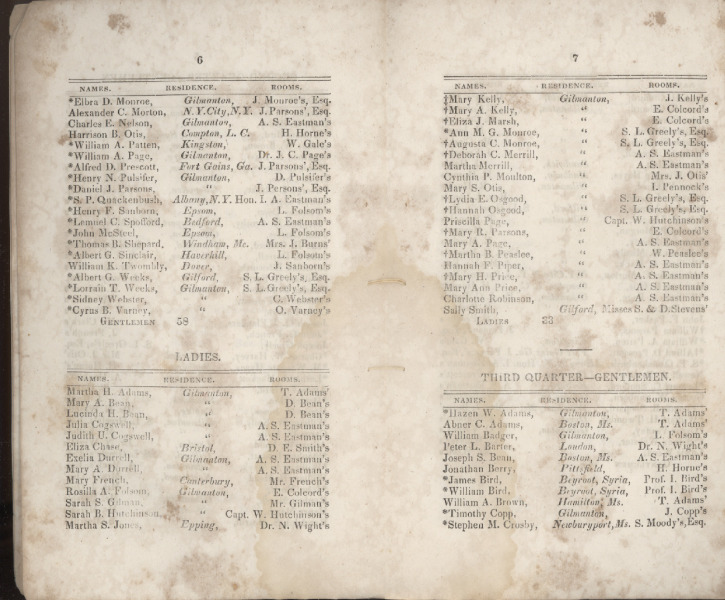 6
NAMES. RESIDENCE. ROOMS.
*Elbra D. Monroe, Gilmanton, J. Monroe's, Esq.
Alexander C. Morton, N. Y. City, N. Y. J. Parsons', Esq.
Charles E. Nelson, Gilmanton, A. S. Eastman's
Harrison B. Otis, Compton, L. C. H. Horne's
*William A. Patten, Kingston, W. Gale's
*William A. Page, Gilmanton, Dr. J. C. Page's
*Alfred D. Prescott, Fort Gains, Ga. J. Parsons', Esq.
*Henry N. Pulsifer, Gilmanton, D. Pulsifer's
*Daniel J. Parsons, " J. Persons', Esq.
*S. P. Quackenbush, Albany, N. Y. Hon. I. A. Eastman's
*Henry F. Sanborn, Epsom, L. Folsom's
*Lemuel C. Spofford, Bedford, A. S. Eastman's
*John McSteel, Epsom, L. Folsom's
*Thomas B. Shepard, Windham, Me. Mrs. J. Burns'
*Albert G. Sinclair, Haverhill, L. Folsom's
William K. Twombly, Dover, J. Sanborn's
*Albert G. Weeks, Gilford, S. L. Greely's, Esq.
*Lorrain T. Weeks, Gilmanton, S. L. Greely's, Esq.
*Sidney Webster, " C. Webster's
*Cyrus B. Varney, " O. Varney's
GENTLEMEN 58
LADIES.
NAMES. RESIDENCE. ROOMS.
Martha H. Adams, Gilmanton, T. Adams'
Mary A. Bean, " D. Bean's
Lucinda H. Bean, " D. Bean's
Julia Cogswell, " A. S. Eastman's
Judith U. Cogswell, " A. S. Eastman's
Eliza Chase, Bristol, D. E. Smith's
Exelia Durrell, Gilmanton, A. S. Eastman's
Mary A. Durrell, " A. S. Eastman's
Mary French, Canterbury, Mr. French's
Rosilla A. Folsom, Gilmanton, E. Colcord's
Sarah S. Gilman, " Mr. Gilman's
Sarah B. Hutchinson, " Capt. W. Hutchinson's
Martha S. Jones, Epping, Dr. N. Wight's
7
NAMES. RESIDENCE. ROOMS.
‡Mary Kelly, Gilmanton, J. Kelly's
†Mary A. Kelly, " E. Colcord's
†Eliza J. Marsh, " E. Colcord's
*Ann M. G. Monroe, " S. L. Greely's, Esq.
†Augusta C. Monroe, " S. L. Greely's, Esq.
†Deborah C. Merrill, " A. S. Eastman's
Martha Merrill, " A. S. Eastman's
Cynthia P. Moulton, " Mrs. J. Otis'
Mary S. Otis, " I. Pennock's
†Lydia E. Osgood, " S. L. Greely's, Esq.
†Hannah Osgood, " S. L. Greely's, Esq.
Priscilla Page, " Capt. W. Hutchinson's
†Mary R. Parsons, " E. Colcord's
Mary A. Page, " A. S. Eastman's
†Martha B. Peaslee, " W. Peaslee's
Hannah F. Piper, " A. S. Eastman's
†Mary H. Price, " A. S. Eastman's
Mary Ann Price, " A. S. Eastman's
Charlotte Robinson, " A. S. Eastman's
Sally Smith, Gilford, Misses S. & D. Stevens'
LADIES 33
THIRD QUARTER—GENTLEMEN.
NAMES. RESIDENCE. ROOMS.
*Hazen W. Adams, Gilmanton, T. Adams'
Abner C. Adams, Boston, Ms. T. Adams'
William Badger, Gilmanton, L. Folsom's
Peter L. Barter, London, Dr. N. Wight's
Joseph S. Bean, Boston, Ms. A. S. Eastman's
Jonathan Berry, Pittsfield, H. Horne's
*James Bird, Beyroot, Syria, Prof. I. Bird's
*William Bird, Beyroot, Syria, Prof. I. Bird's
William A. Brown, Hamilton, Ms. T. Adams'
*Timothy Copp, Gilmanton, J. Copp's
*Stephen M. Crosby, Newburyport, Ms. S. Moody's, Esq.